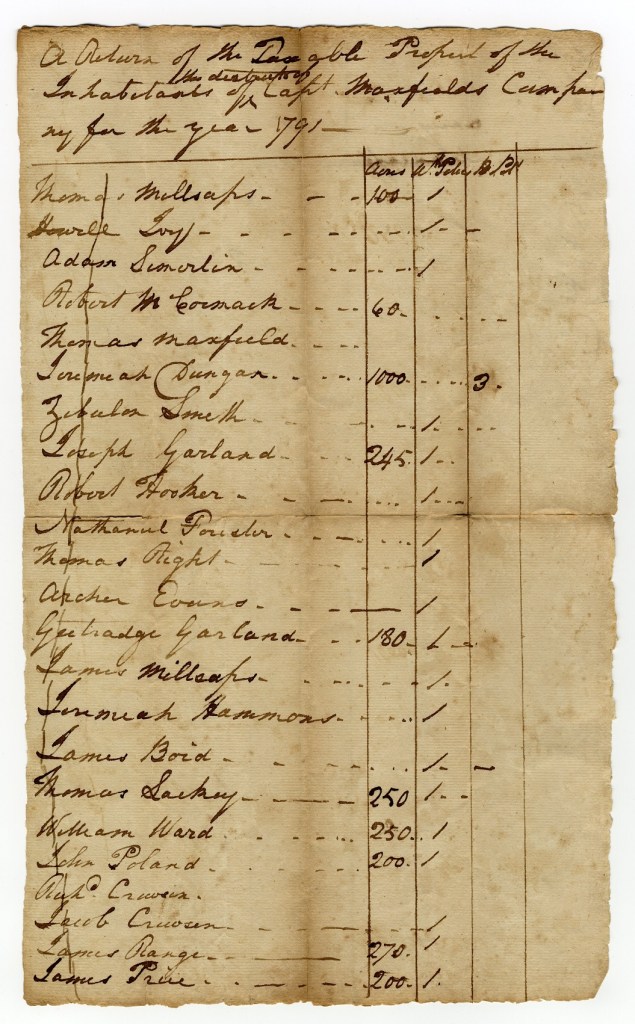 A Return of the Taxable Propert of the
Inhabitants of the district of Capt. Maxfields Compa
ny for the year 1791
Acres Wh. Poles B. Pl
Thomas Millsaps - - - 100 - 1
Howell Ivy - - - - 1 - -
Adam Simerlin - - - - 1
Robert McCormack - - - 60 - - - -
Thomas Maxfield - - -
Jeremeah Dungan - - - 1000 - - - 3 -
Zebulon Smith - - - 1 - - -
Joseph Garland - - - 245 - 1 - -
Robert Hooker - - - - 1 - - -
Nathaniel Forister - - - - 1
Thomas Right - - - - 1
Archer Evans - - - - 1
Gutradge Garland - - - 180 - 1 - -
James Millsaps - - - - 1 -
Jeremeah Hammons - - - - 1
James Boid - - - - 1 - -
Thomas Lackey - - - 250 1 - -
William Ward - - - 250 - 1
John Poland - - - 200 - 1
Richd. Crowsen -
Jacob Crowsen - - - - 1
James Range - - - 270 - 1
James Price - - - 200 - 1 -